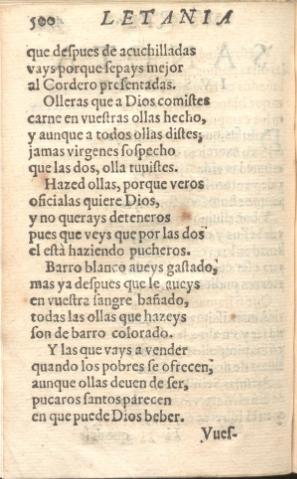 500 LETANIA
que despues de acuchilladas
vays porque sepays mejor
al Cordero presentadas.
Olleras que a Dios comistes
carne en vuestras ollas hecho,
y aunque a todos ollas distes,
jamas virgenes sospecho
que las dos, olla tuuistes.
Hazed ollas, porque veros
oficialas quiere Dios,
y no querays deteneros
pues que veys que por las dos
el està haziendo pucheros.
Barro blanco aueys gastado,
mas ya despues que le aueys
en vuestra sangre bañado,
todas las ollas que hazeys
son de barro colorado.
Y las que vays a vender
quando los pobres se ofrecen,
aunque ollas deuen de ser,
pucaros santos parecen
en que puede Dios beber.
Vues-